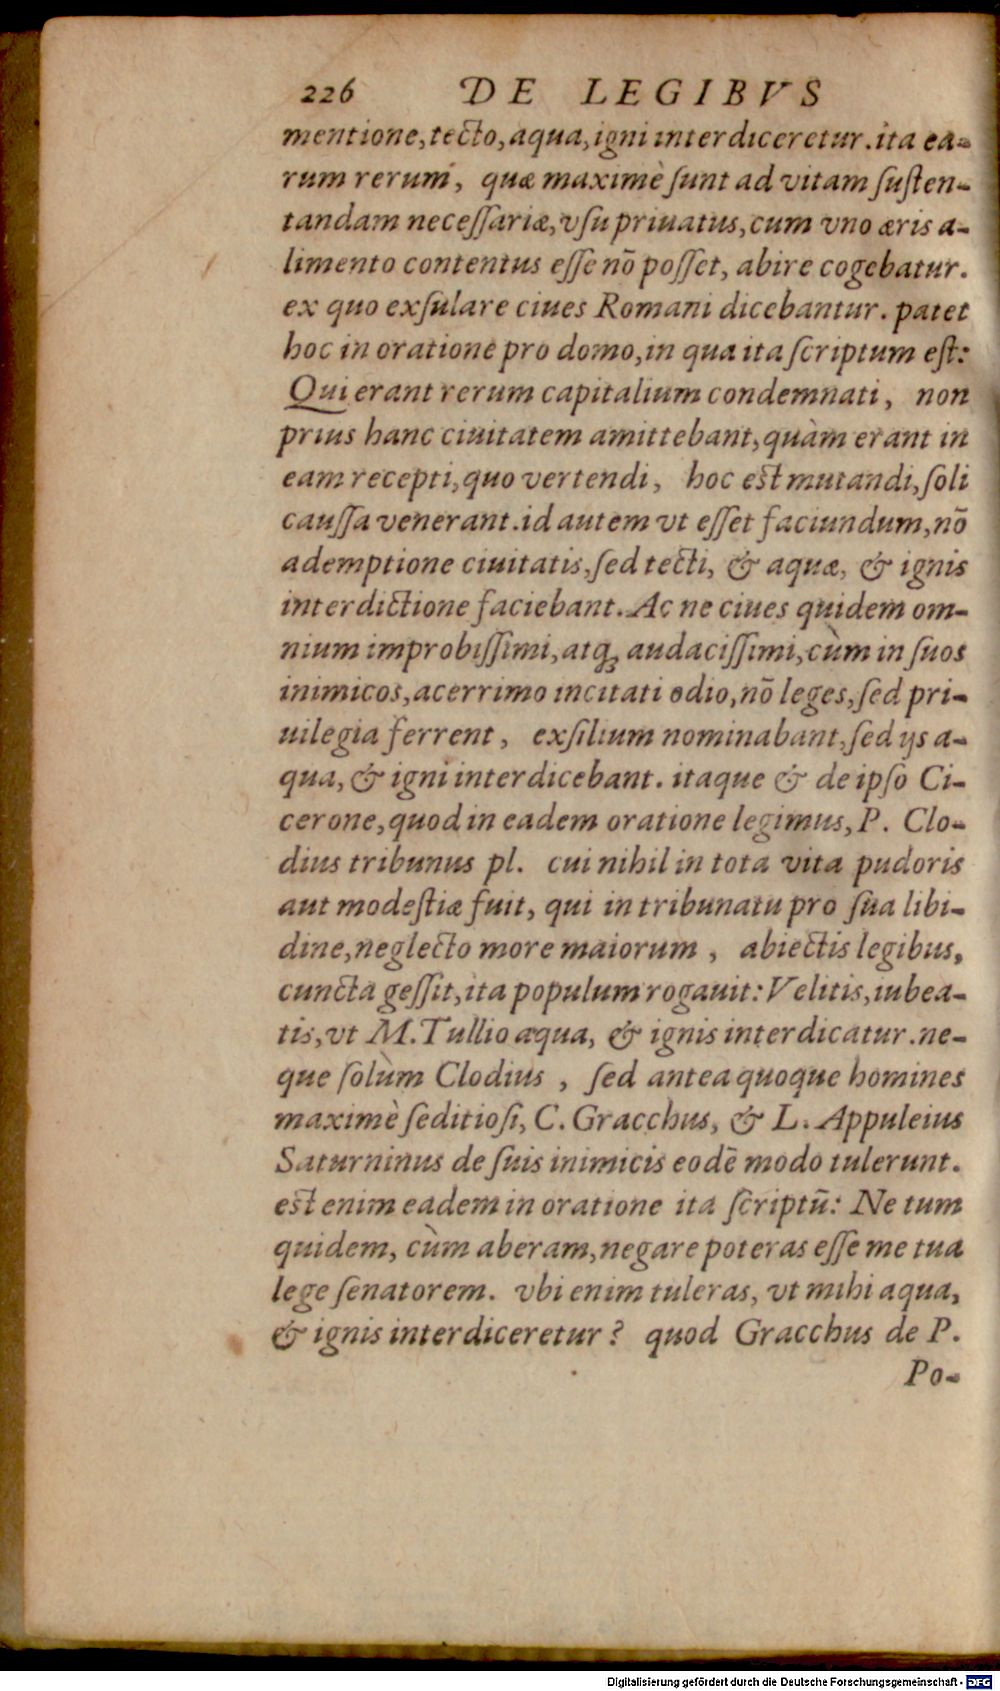 226 DE LEGIBVS
mentione, tecto, aqua, igni interdiceretur. ita ea-
rum rerum, quæ maximè ſunt ad vitam ſuſten-
tandam neceſſariæ, vſu priuatus, cum vno æris a-
limento contentus eſſe nõ poſſet, abire cogebatur.
ex quo exſulare ciues Romani dicebantur. patet
hoc in oratione pro domo, in qua ita ſcriptum eſt:
Qui erant rerum capitalium condemnati, non
prius hanc ciuitatem amittebant, quàm erant in
eam recepti, quo vertendi, hoc eſt mutandi, ſoli
cauſſa venerant. id autem vt eſſet faciundum, nõ
ademptione ciuitatis, ſed tecti, & aquæ, & ignis
interdictione faciebant. Ac ne ciues quidem om-
nium improbiſſimi, atq; audaciſſimi, cùm in ſuos
inimicos, acerrimo incitati odio, nõ leges, ſed pri-
uilegia ferrent, exſilium nominabant, ſed ijs a-
qua, & igni interdicebant. itaque & de ipſo Ci-
cerone, quod in eadem oratione legimus, P. Clo-
dius tribunus pl. cui nihil in tota vita pudoris
aut modeſtiæ fuit, qui in tribunatu pro ſua libi-
dine, neglecto more maiorum, abiectis legibus,
cuncta geſſit, ita populum rogauit: Velitis, iubea-
tis, vt M. Tullio aqua, & ignis interdicatur. ne-
que ſolùm Clodius, ſed antea quoque homines
maximè ſeditioſi, C. Gracchus, & L. Appuleius
Saturninus de ſuis inimicis eodẽ modo tulerunt.
eſt enim eadem in oratione ita ſcriptũ: Ne tum
quidem, cùm aberam, negare poteras eſſe me tua
lege ſenatorem. vbi enim tuleras, vt mihi aqua,
& ignis interdiceretur? quod Gracchus de P.
Po-
Digitalisierung gefördert durch die Deutsche Forschungsgemeinschaft - DFG